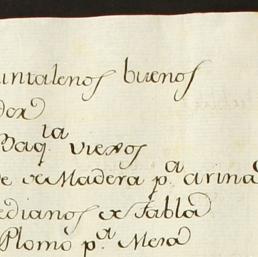 untaleños buenos
dox
Baq.la viexos
e de Madera p.a arina
edianos de Tabla
Plomo p.a Mesa